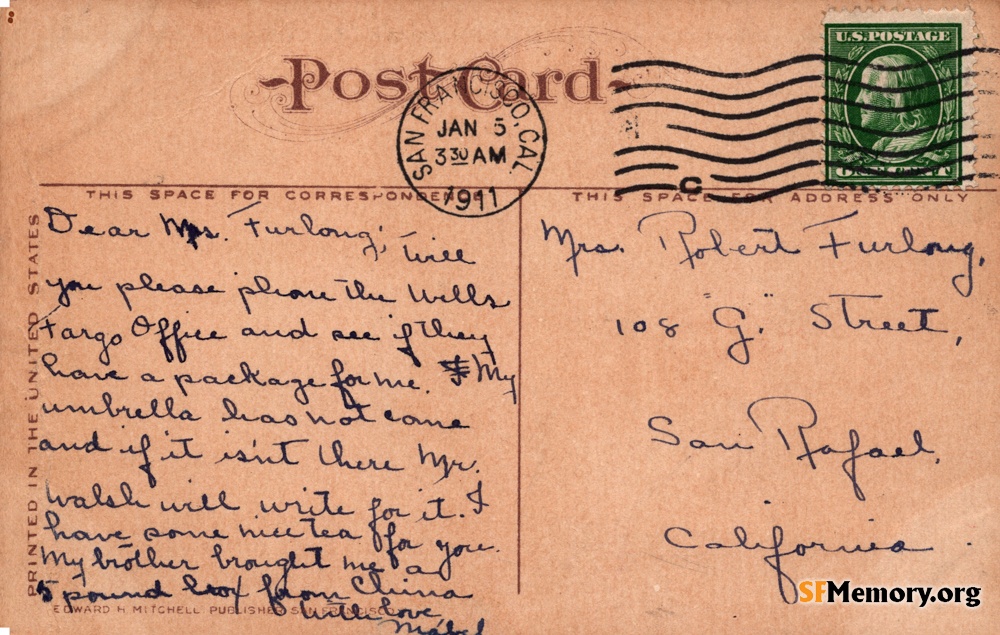 Post Card
U.S. POSTAGE
SAN FRANCISCO, CAL.
JAN 5
3 30 AM
1911
C
THIS SPACE FOR CORRESPONDENCE
THIS SPACE FOR ADDRESS ONLY
PRINTED IN THE UNITED STATES
Dear Mrs. Furlong; Will
you please phone the Wells
Fargo Office and see if they
have a package for me. My
umbrella has not come
and if it isn't there Mr.
Walsh will write for it. I
have some nice tea for you.
My brother brought me a
5 pound box from China
With love
Mabel
EDWARD H. MITCHELL PUBLISHER SAN FRANCISCO
Mrs. Robert Furlong,
108 "G." Street,
San Rafael,
California.
SFMemory.org